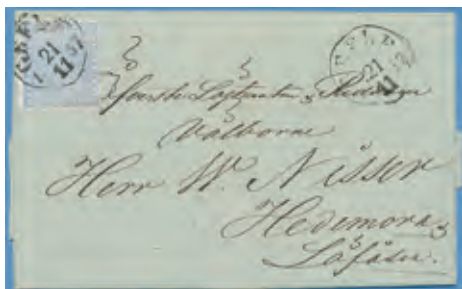 GEFLE
21
11
GEFLE
21
11
Löjtnanten & Riddaren
Välborne
Herr W. Nisser
Hedemora
Löfåsen.